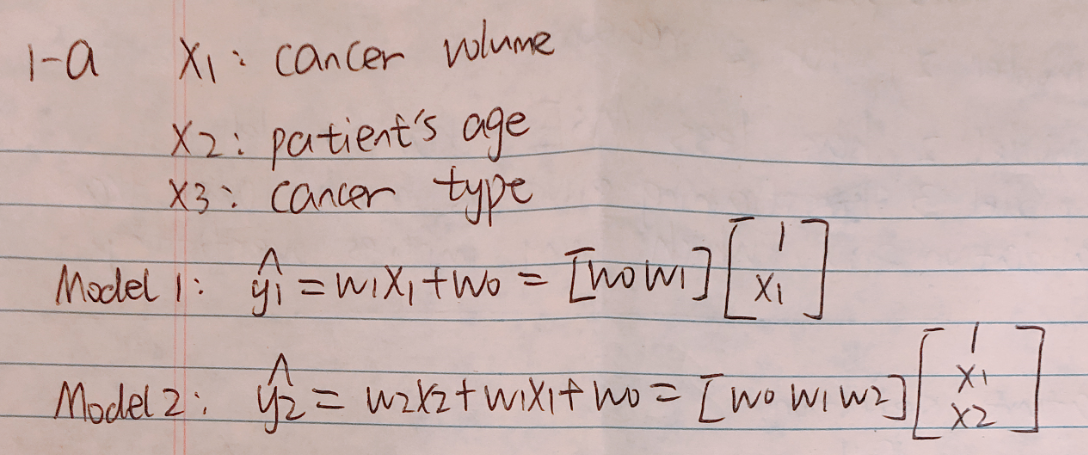 1-a X1: cancer volume
X2: patient's age
X3: cancer type
Model 1: ŷ1 = w1X1+w0 = [w0 w1] [1 X1]
Model 2: ŷ2 = w2X2+w1X1+w0 = [w0 w1 w2] [1 X1 X2]